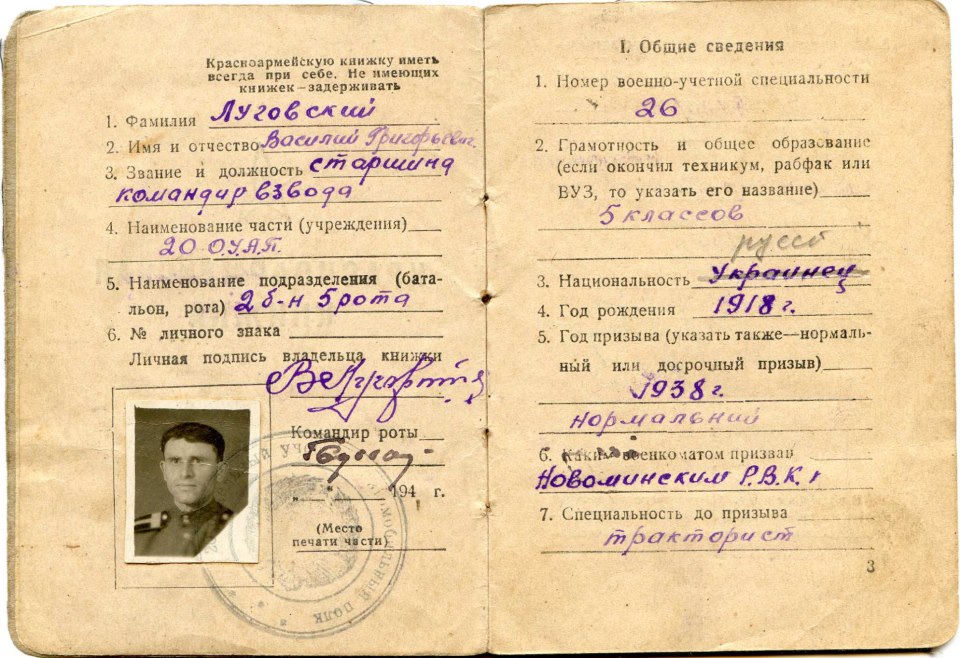 Красноармейскую книжку иметь
всегда при себе. Не имеющих
книжек—задерживать
1. Фамилия Луговский
2. Имя и отчество Василий Григорьевич.
3. Звание и должность старшина
командир взвода
4. Наименование части (учреждения)
20 О.У.А.П.
5. Наименование подразделения (бата-
льон, рота) 2 б-н 5 рота
6. № личного знака
Личная подпись владельца книжки
Командир роты
„ “ 194 г.
(Место
печати части)
мобильный полк
I. Общие сведения
1. Номер военно-учетной специальности
26
2. Грамотность и общее образование
(если окончил техникум, рабфак или
ВУЗ, то указать его название)
5 классов
русс
3. Национальность Украинец
4. Год рождения 1918 г.
5. Год призыва (указать также—нормаль-
ный или досрочный призыв)
1938 г.
нормальний
6. Каким военкоматом призван
Новоминским Р.В.К.
7. Специальность до призыва
тракторист
3